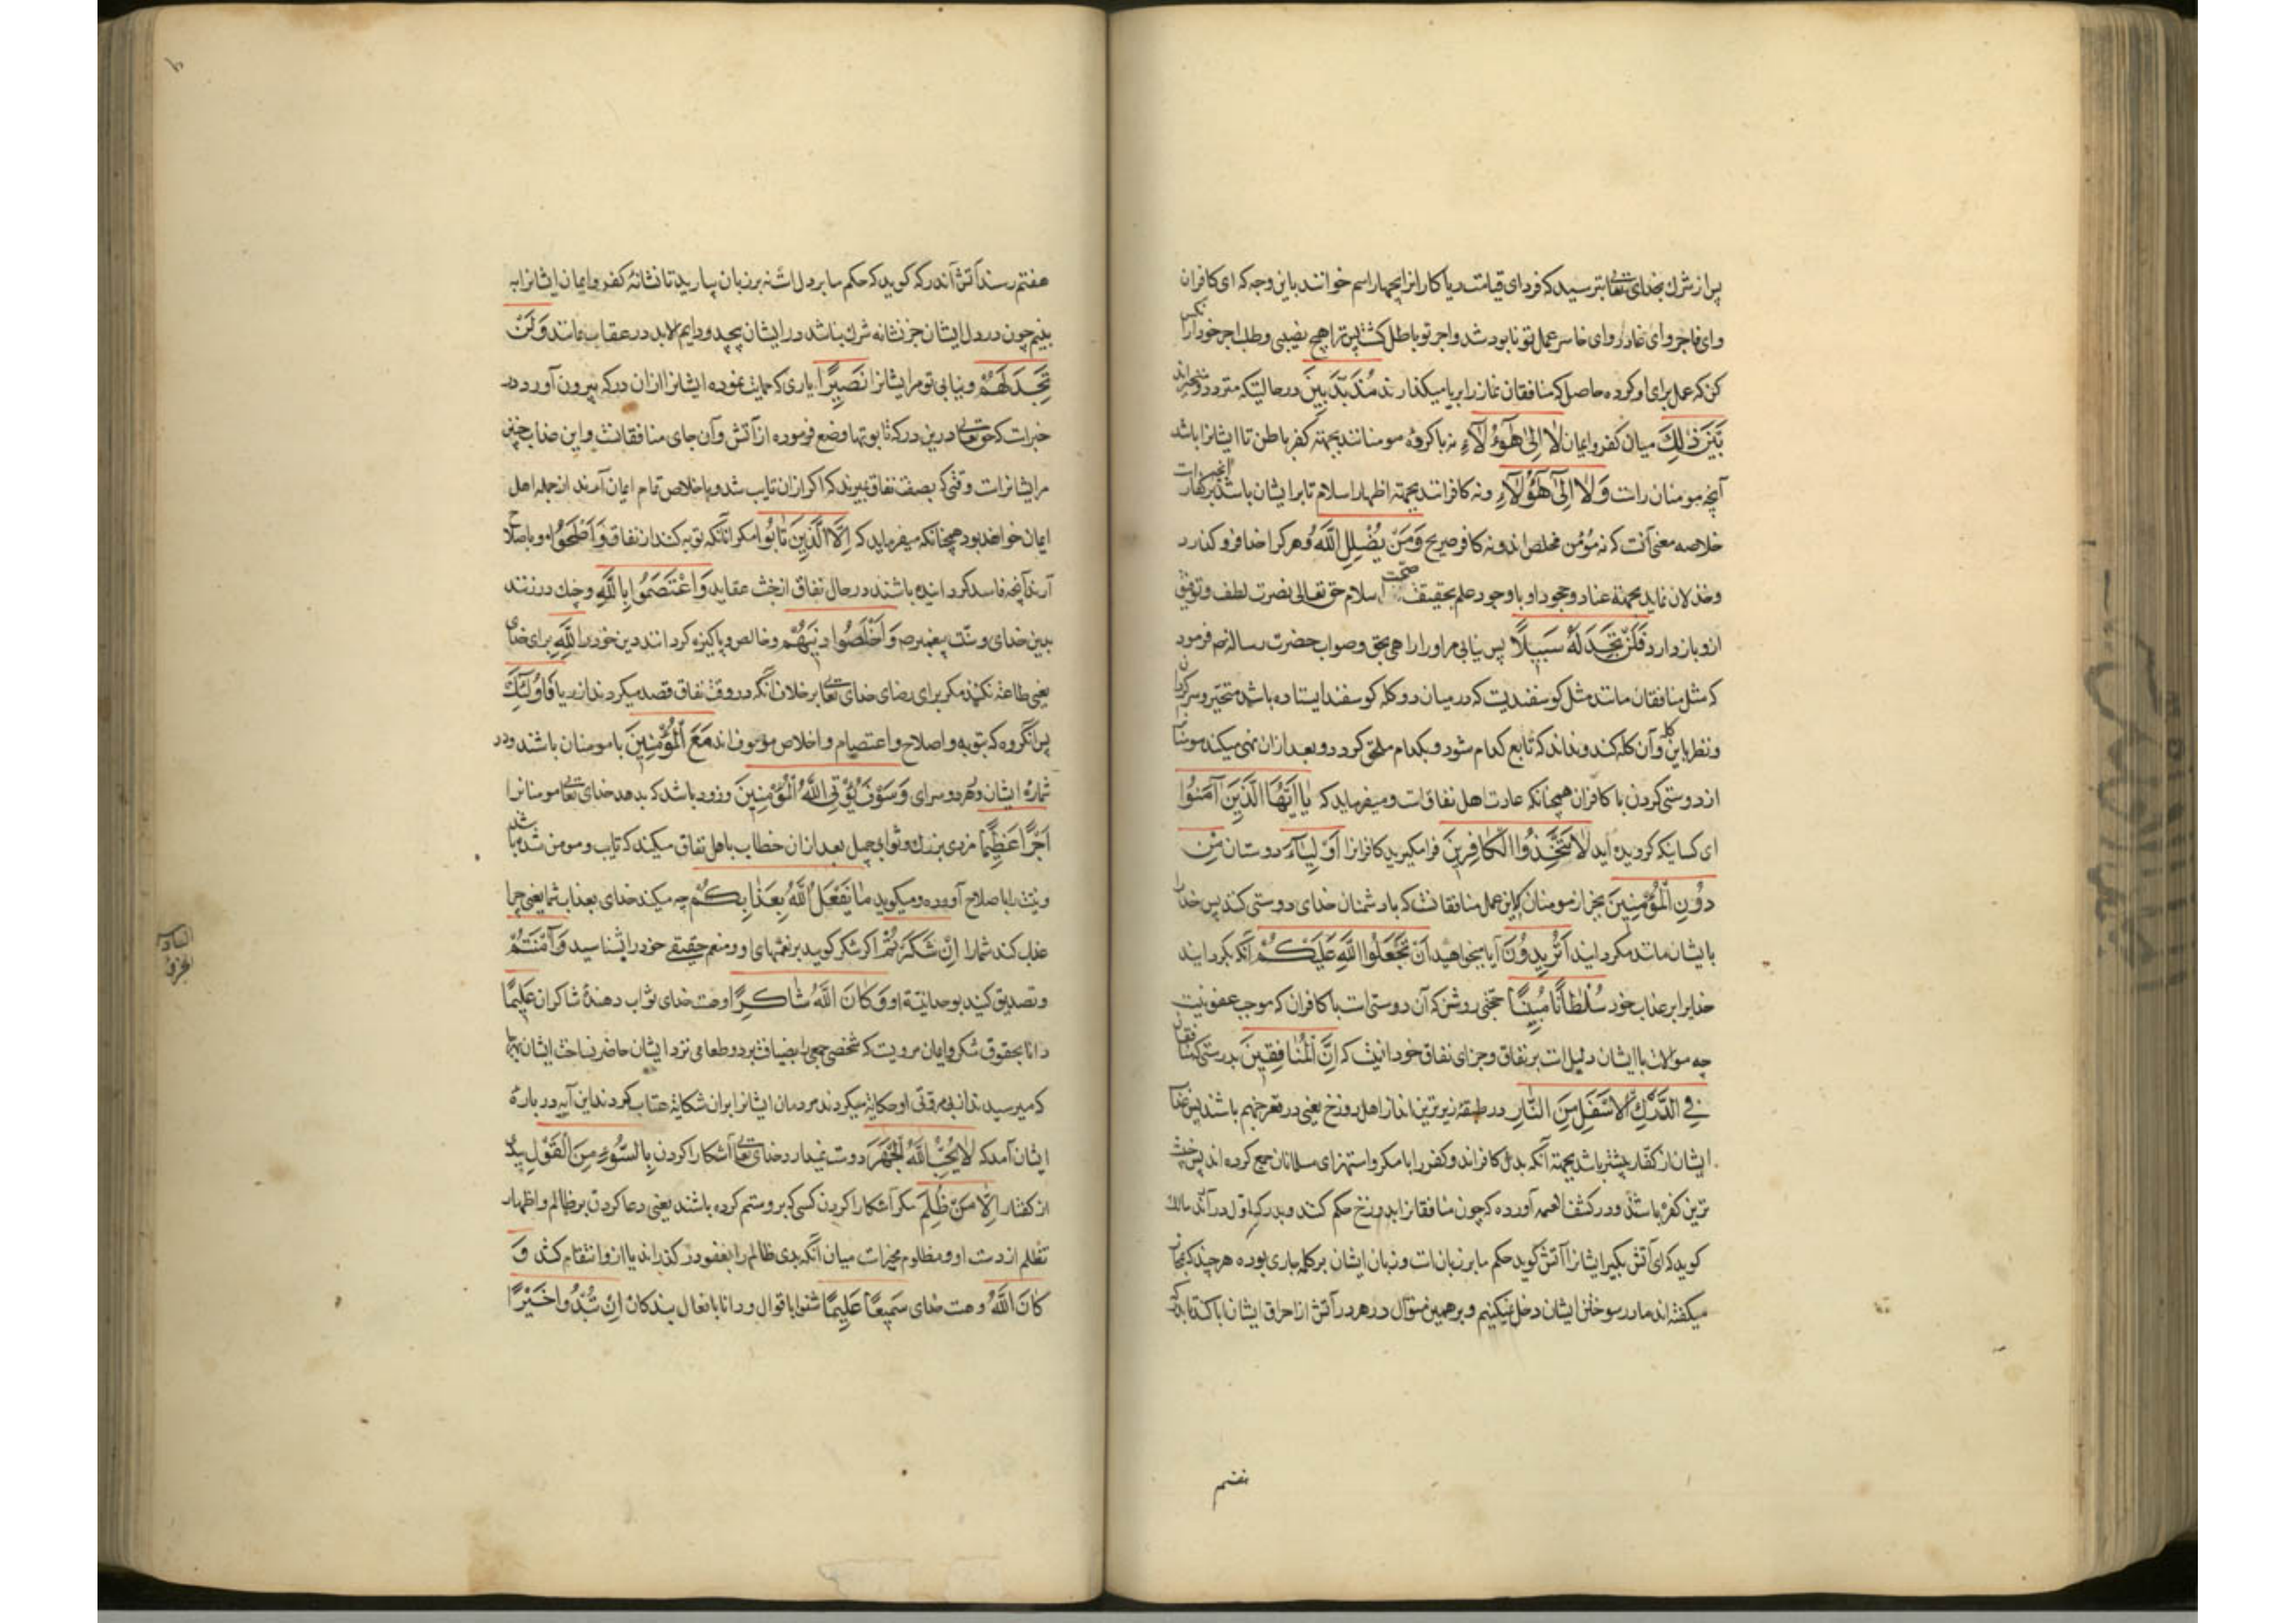 پس از شرك بخدای تعالی بترسید که فردای قیامت ریاکار انرا بچهار اسم خوانند باین وجه که ای کافران
وای فاجر وای غادر وای خاسر عمل تو نابود شد واجر تو باطل کشت پس ترا هیچ نصیبی وطلب اجر خود از آنکس
کن که عمل برای او کرده حاصل که منافقان نماز را برپا میکذارند مُذَبْذَبِینَ در حالتیکه متردد ومتحیراند
بَیْنَ ذٰلِكَ میان کفر وایمان لَا اِلیٰ هٰۤؤُلَآءِ نه با کروه مومنانند بجهته کفر باطن تا ایشانرا باشد
آنچه مومنان راست وَلَا اِلیٰ هٰۤؤُلَآءِ ونه کافرانند بجهته اظهار اسلام تا بر ایشان باشد آنچه برکفار است
خلاصه معنی آنست که نه مؤمن مخلص اند ونه کافر صریح وَمَنْ یُضْلِلِ اللّٰهُ وهر کرا خدا فرو کذارد
وخذلان نماید بجهتهٔ عناد وجحود او با وجود علم بحقیقت صحت اسلام حق تعالی نصرت لطف وتوفیق
ازو باز دارد فَلَنْ تَجِدَ لَهُ سَبِیلًا پس نیابی مر اورا راهی بحق وصواب حضرت رساله ص فرمود
که مثل منافقان مانند مثل کوسفندیست که در میان دو کله کوسفند ایستاده باشد متحیر وسرکردان
ونظر باین کله وآن کله کند ونداند که تابع کدام شود وبکدام ملحق کردد وبعد ازان نهی میکند مومنانرا
از دوستی کردن با کافران همچنانکه عادت اهل نفاق است ومیفرماید که یٰا اَیُّهَا الَّذِینَ آمَنُوا
ای کسانیکه کرویده اید لَا تَتَّخِذُوا الْکٰافِرِینَ فرا مکیرید کافرانرا اَوْلِیٰآءَ دوستان مِنْ
دُونِ الْمُؤْمِنِینَ بجز از مومنان که این عمل منافقانست که با دشمنان خدای دوستی کنند پس خود را
بایشان مانند مکردانید اَتُرِیدُونَ آیا میخواهید اَنْ تَجْعَلُوا اللّٰهِ عَلَیْکُمْ آنکه بکردانید
خدایرا بر عذاب خود سُلْطٰانًا مُبِینًا حجتی روشن که آن دوستی است با کافران که موجب عقوبتست
چه موالات با ایشان دلیل است بر نفاق وجزای نفاق خود اینست که اِنَّ الْمُنٰافِقِینَ بدرستی که منافقان
فِی الدَّرْكِ الْاَسْفَلِ مِنَ النّٰارِ در طبقهٔ زیرترین اند از اهل دوزخ یعنی در قعر جهنم باشند پس عذاب
ایشان از کفار بیشتر باشد بجهته آنکه بدل کافراند وکفر را با مکر واستهزای مسلمانان جمع کرده اند پس خبیث
ترین کفره باشند ودر کشف الهمه آورده که چون منافقانرا بدوزخ حکم کنند وبدرکه اول درآیند مالك
کوید که ای آتش بکیر ایشانرا آتش کوید حکم ما بر زبان است وزبان ایشان بر کلمه جاری بوده هر چند که بمجاز
میکفته اند مارا در سوختن ایشان دخل نیکنیم وبر همین منوال در هر درك آتش از احراق ایشان
هفتم
هفتم رسند آتش آن درکه کوید که حکم ما بر دل است نه بر زبان بیارید تا نشانهٔ کفر وایمان ایشانرا به
بینم چون در دل ایشان جز نشانه شرك نباشد در ایشان پیچد ودایم لابد در عقاب مانند وَلَنْ
تَجِدَ لَهُمْ ونیابی تو مر ایشانرا نَصِیرًا یاری که حمایت نموده ایشانرا ازان درکه بیرون آورد در
خبر است که حق تعالی درین درکه تابوتها وضع فرموده از آتش وآن جای منافقانست واین عذاب چنین
مر ایشانراست وقتی که بصفت نفاق بمیرند که اکر ازان تایب شده باخلاص تمام ایمان آرند از جمله اهل
ایمان خواهند بود همچنانکه میفرماید که اِلَّا الَّذِینَ تٰابُوا مکر آنانکه توبه کنند از نفاق وَاَصْلَحُوا وباصلاح
آرند آنچه فاسد کردانیده باشند در حال نفاق از خبث عقاید وَاعْتَصَمُوا بِاللّٰهِ وچنك در زنند
بدین خدای وسنت پیغمبر ص وَاَخْلَصُوا دِینَهُمْ وخالص وپاکیزه کردانند دین خود را لِلّٰهِ برای خدای
یعنی طاعته نکنند مکر برای رضای خدای تعالی بر خلاف آنکه در وقت نفاق قصد میکردند از ریا فَاُولٰئِكَ
پس آنکروه که بتوبه واصلاح واعتصام واخلاص موصوف اند مَعَ الْمُؤْمِنِینَ با مومنان باشند ودر
شمارهٔ ایشان در هر دو سرای وَسَوْفَ یُؤْتِی اللّٰهُ الْمُؤْمِنِینَ وزود باشد که بدهد خدای تعالی مومنانرا
اَجْرًا عَظِیمًا مزدی بزرك وثوابی جمیل بعد ازان خطاب باهل نفاق میکند که تایب ومومن شده باشند
ونیت را باصلاح آورده ومیکوید مٰا یَفْعَلُ اللّٰهُ بِعَذٰابِکُمْ چه میکند خدای بعذاب شما یعنی چرا
عذاب کند شمارا اِنْ شَکَرْتُمْ اکر شکر کویید بر نعمتهای او ومنعم حقیقی خود را شناسید وَآمَنْتُمْ
وتصدیق کنید بوحدانیتهٔ او وَکٰانَ اللّٰهُ شٰاکِرًا وهست خدای ثواب دهندهٔ شاکران عَلِیمًا
دانا بحقوق شکر وایمان مرویست که شخصی جمعی را بضیافت برد وطعامی نزد ایشان حاضر نساخت ایشان بهرجا
که میرسیدند از بی مروتی او حکایة میکردند مردمان ایشانرا بران شکایة عتاب کردند این آیه در بارهٔ
ایشان آمد که لٰا یُحِبُّ اللّٰهُ الْجَهْرَ دوست نمیدارد خدای تعالی آشکارا کردن بِالسُّوءِ مِنَ الْقَوْلِ بدی
از کفتار اِلّٰا مَنْ ظُلِمَ مکر آشکارا کردن کسی که برو ستم کرده باشند یعنی دعا کردن بر ظالم واظهار
تظلم از دست او ومظلوم مخیر است میان آنکه بدی ظالم را بعفو در کذراند یا ازو انتقام کشد وَ
کٰانَ اللّٰهُ وهست خدای سَمِیعًا عَلِیمًا شنوا باقوال ودانا بافعال بندکان اِنْ تُبْدُوا خَیْرًا
الجزؤ
السادس